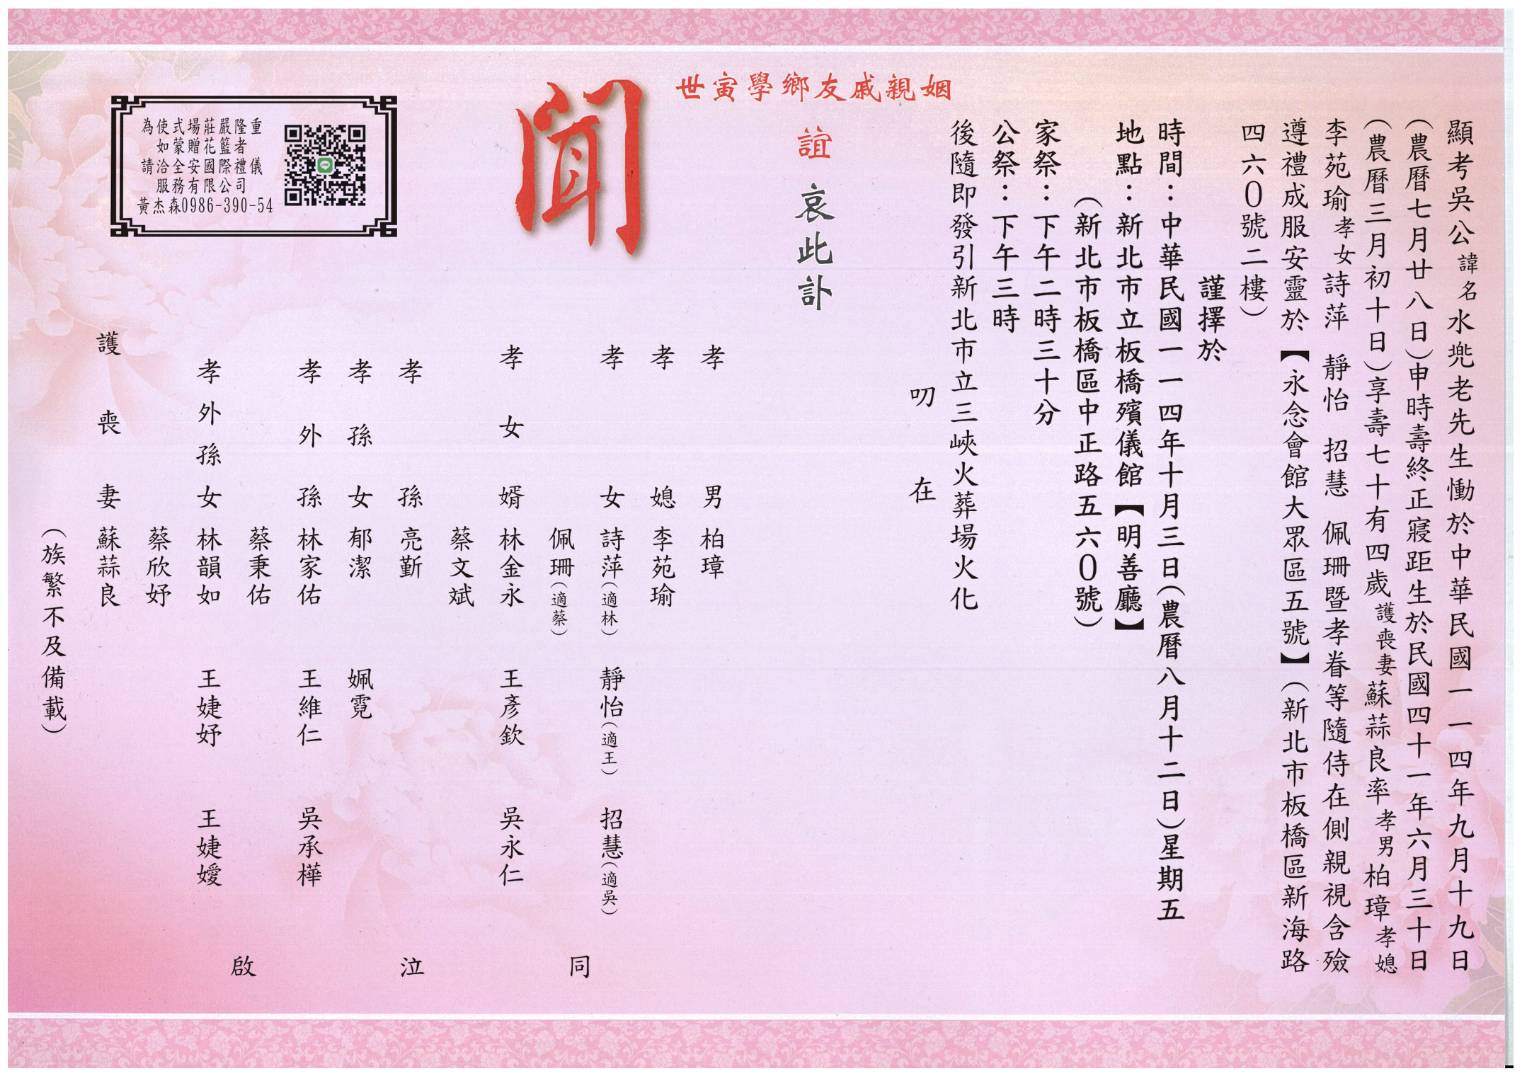 顯考吳公諱名水兠老先生慟於中華民國一一四年九月十九日
(農曆七月廿八日)申時壽終正寢距生於民國四十一年六月三十日
(農曆三月初十日)享壽七十有四歲護喪妻蘇蒜良率孝男柏璋孝媳
李苑瑜孝女詩萍 靜怡 招慧 佩珊暨孝眷等隨侍在側親視含殮
遵禮成服安靈於【永念會館大眾區五號】(新北市板橋區新海路
四六0號二樓)
謹擇於
時間:中華民國一一四年十月三日(農曆八月十二日)星期五
地點:新北市立板橋殯儀館【明善廳】
(新北市板橋區中正路五六0號)
家祭:下午二時三十分
公祭:下午三時
後隨即發引新北市立三峽火葬場火化
叨在
世寅學鄉友戚親姻
誼 哀此訃
聞
孝男 柏璋
孝媳 李苑瑜
孝女 詩萍(適林) 靜怡(適王) 招慧(適吳)
佩珊(適蔡)
孝女婿 林金永 王彥欽 吳永仁
蔡文斌
孝孫 亮勤
孝孫女 郁潔 姵霓
孝外孫 林家佑 王維仁 吳承樺
蔡秉佑
孝外孫女 林韻如 王婕妤 王婕嬡
蔡欣妤
護喪妻 蘇蒜良
同泣啟
(族繁不及備載)
為使式場莊嚴隆重
如蒙贈花籃者
請洽全安國際禮儀
服務有限公司
黃杰森0986-390-54